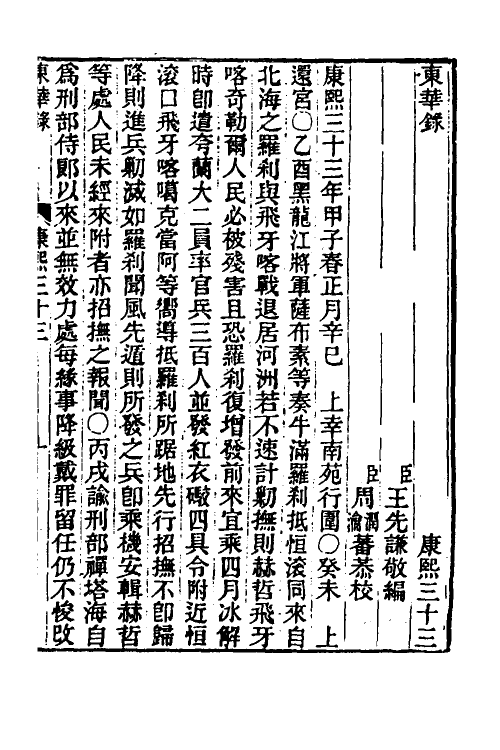 東華錄　康熙三十三
臣王先謙敬編
臣周潤蕃周瀹蕃恭校
康熙三十三年甲子春正月辛巳　上幸南苑行圍○癸未　上
還宮○乙酉黑龍江將軍薩布素等奏牛滿羅刹抵恒滾同來自
北海之羅刹與飛牙喀戰退居河洲若不速計勦撫則赫哲飛牙
喀奇勒爾人民必被殘害且恐羅刹復增發前來宜乘四月冰解
時卽遣夸蘭大二員率官兵三百人並發紅衣礮四具令附近恒
滾口飛牙喀噶克當阿等嚮導抵羅刹所踞地先行招撫不卽歸
降則進兵勦滅如羅刹聞風先遁則所發之兵卽乘機安輯赫哲
等處人民未經來附者亦招撫之報聞○丙戌諭刑部禪塔海自
爲刑部侍郞以來並無效力處每緣事降級戴罪留任仍不悛改
東華錄　康熙三十三　一